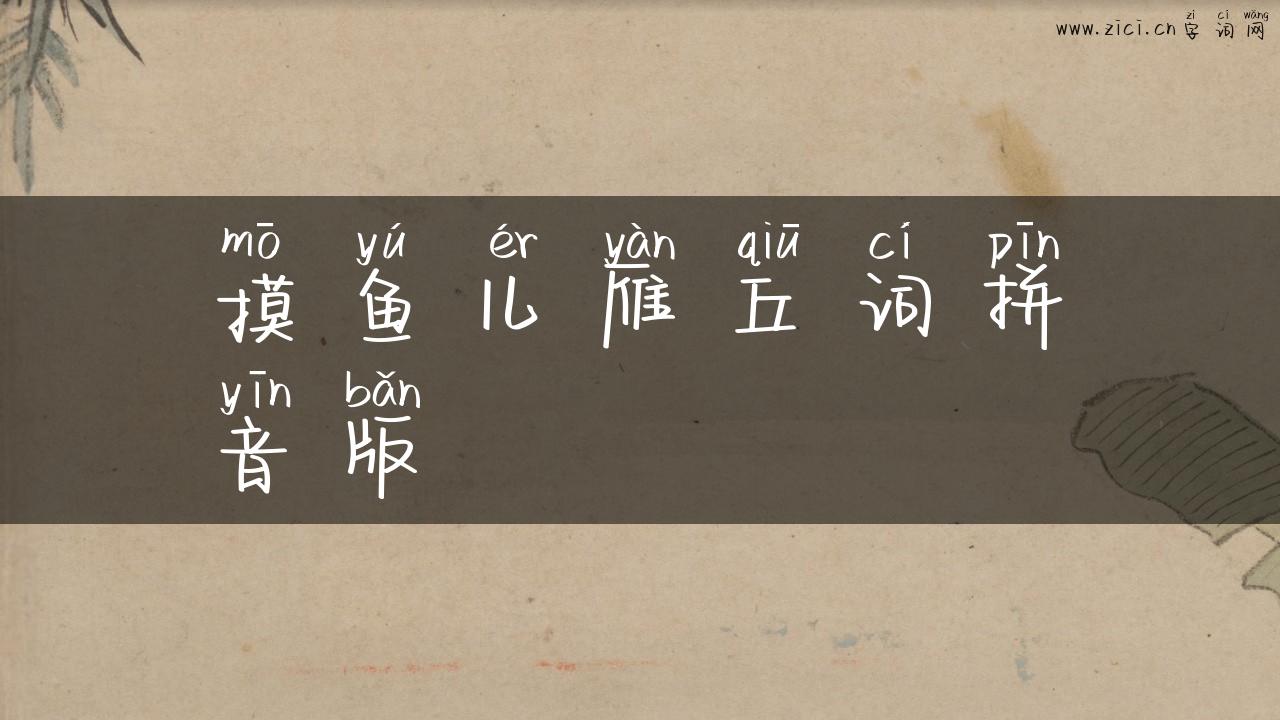 zì cí wǎng
www.zici.cn 字词网
mō yú ér yàn qiū cí pīn
摸鱼儿雁丘词拼
yīn bǎn
音版